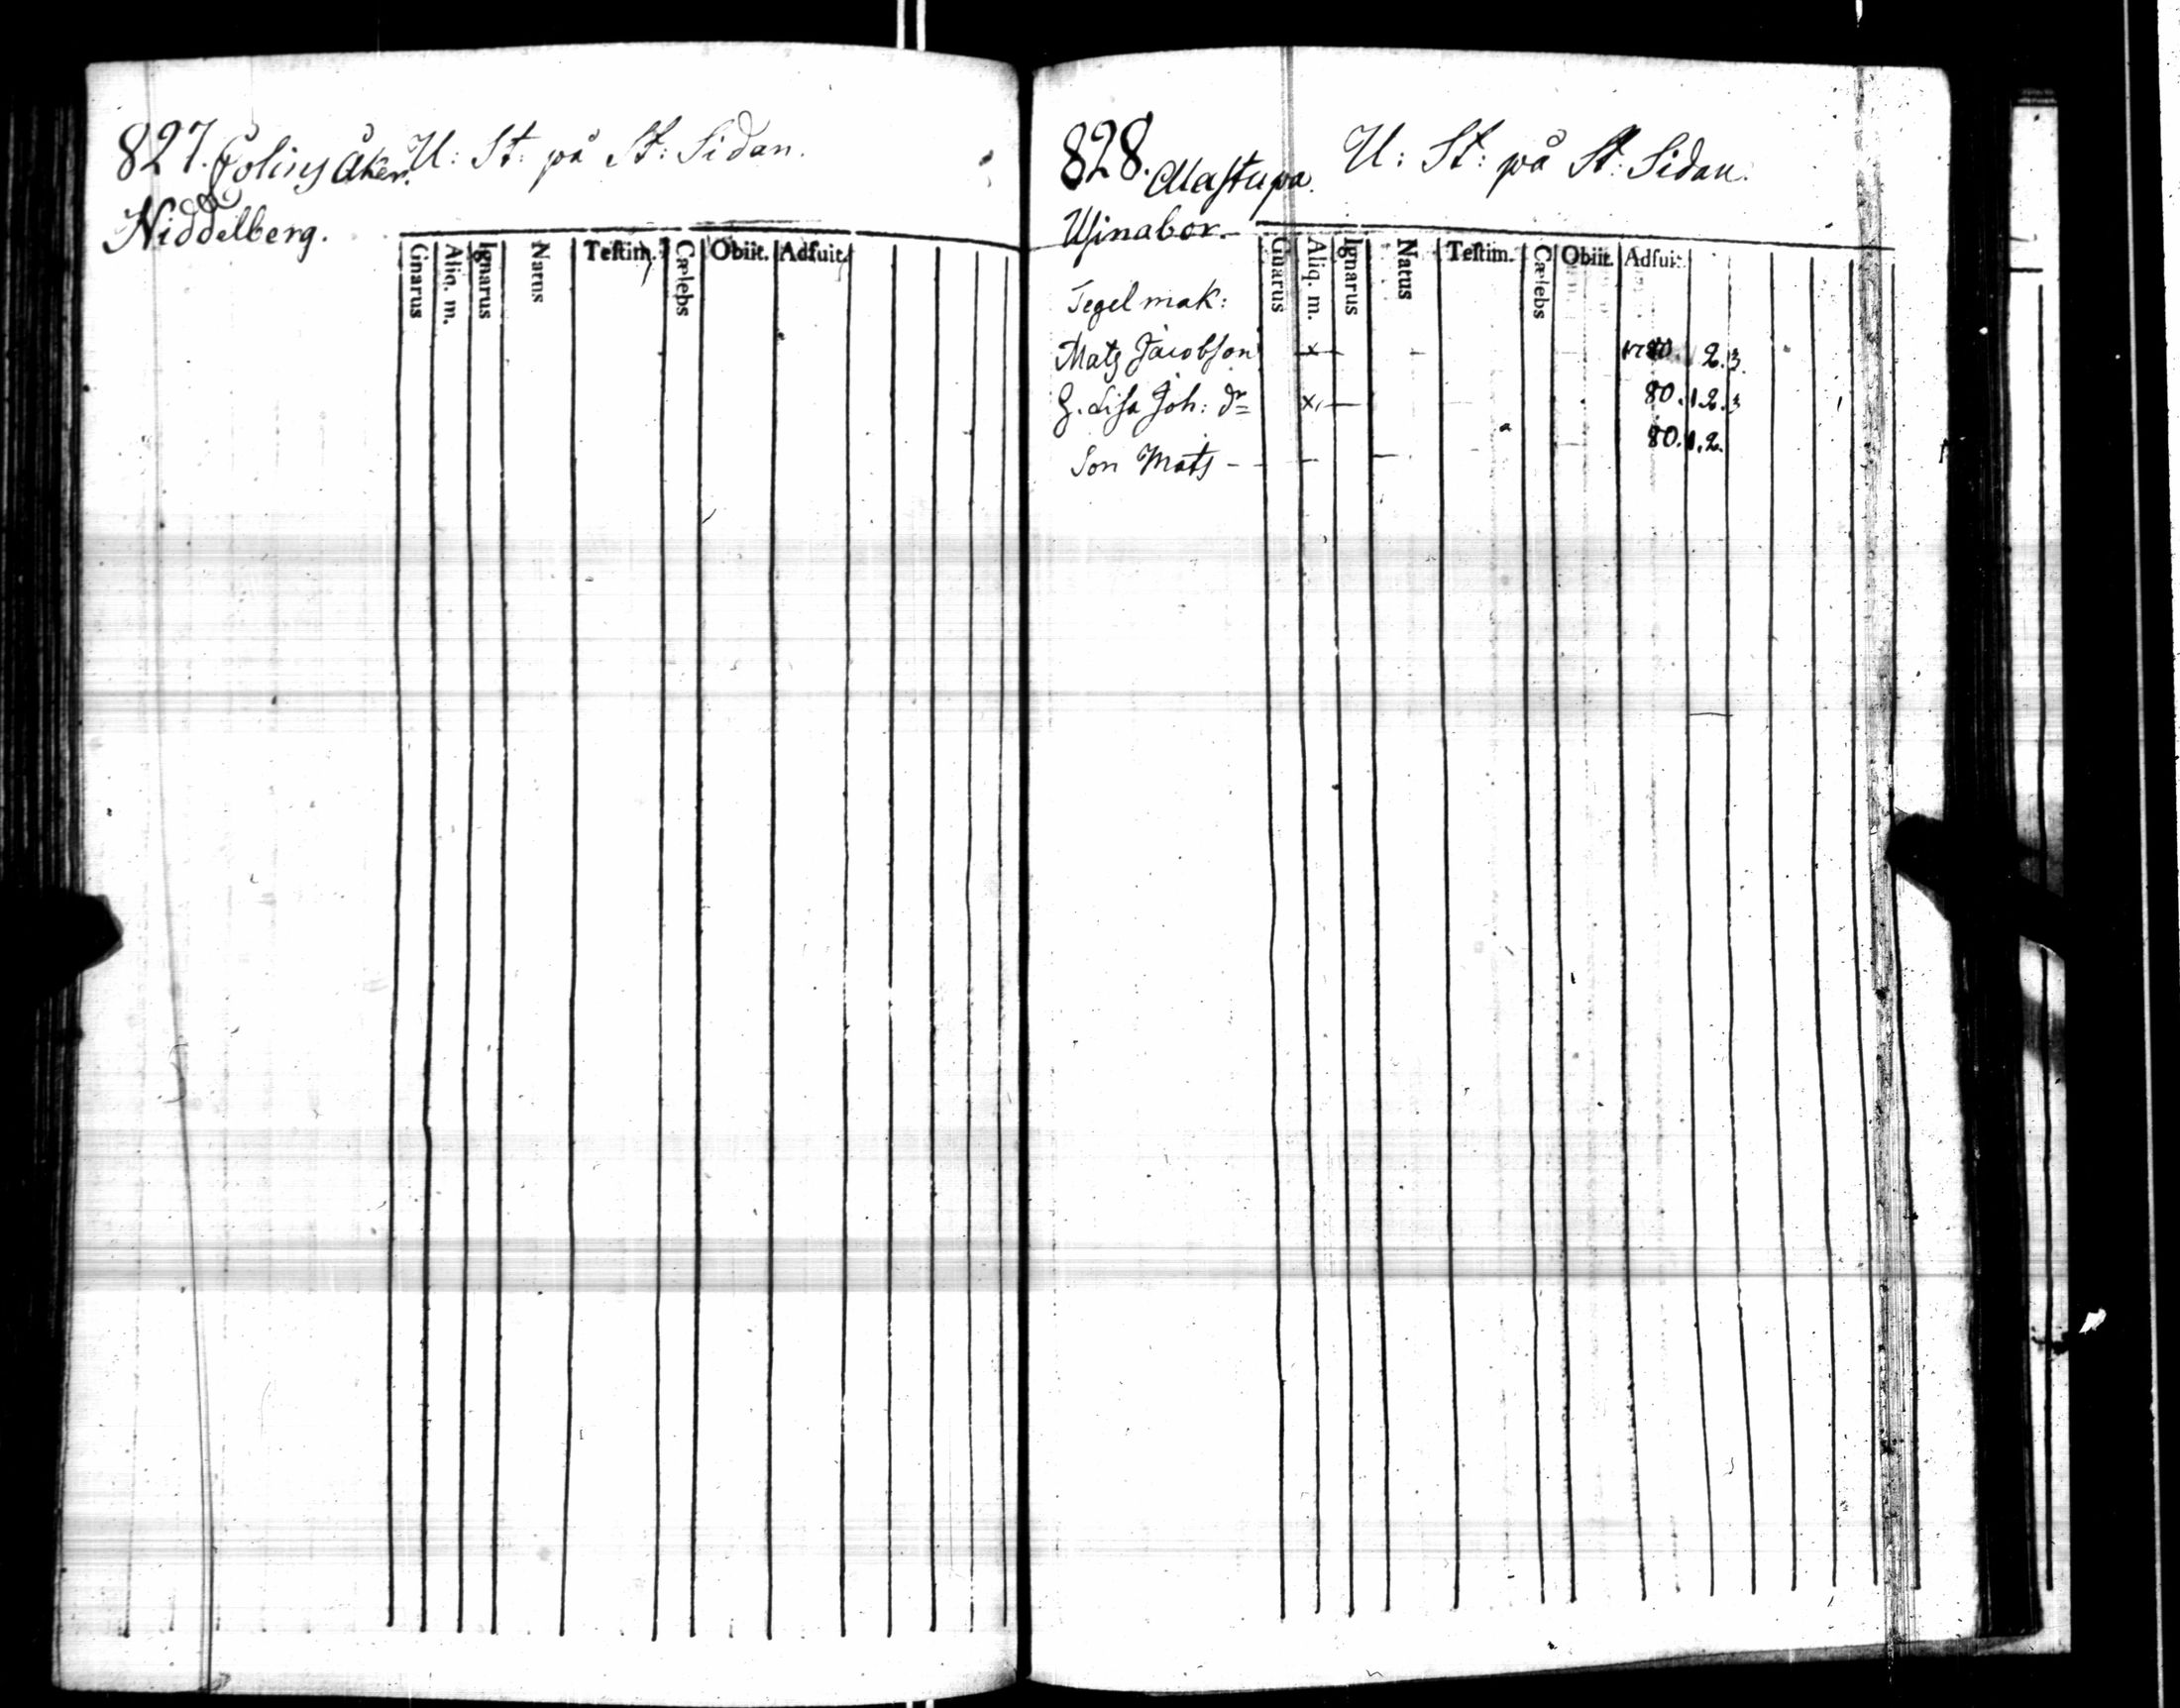 827. Colins Åker. U: St: på St: Sidan.
Niddelberg.
Gnarus Aliq. m. Ignarus Natus Testim. Cælebs Obiit. Adfuit.
828. U: St: på St: Sidan.
Usinabor.
Gnarus Aliq. m. Ignarus Natus Testim. Cælebs Obiit. Adfuit.
Tegelmak:
Mats Jacobson x 1780. 2. 3
H. Lisa Joh: dr x 80. 1. 2. 3
Son Mats - 80. 1. 2.